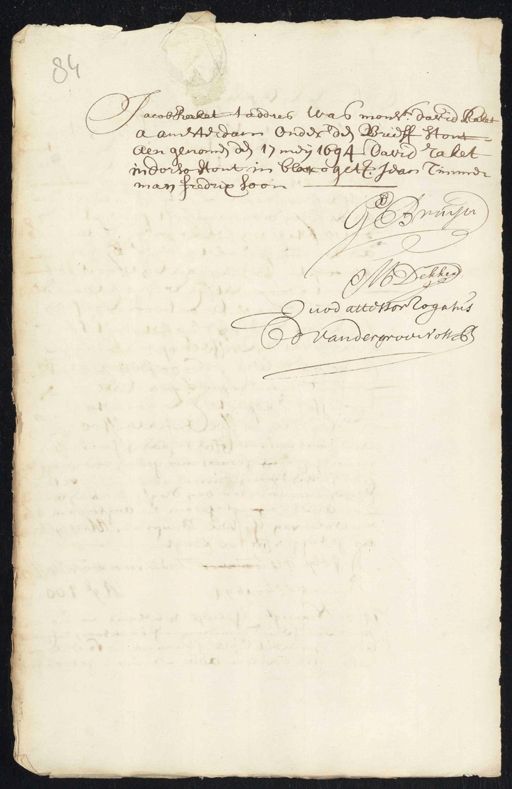 84
Jacob Raket t addres was monsr. david Raket
a amsterdam onder den Brieff stont
aen genomen den 17 meij 1694 David raket
in dorso stont in blanco gett: Jean Timmer
man fredrix soon
G: Bruijn
M Dekker
Quod attestor rogatus